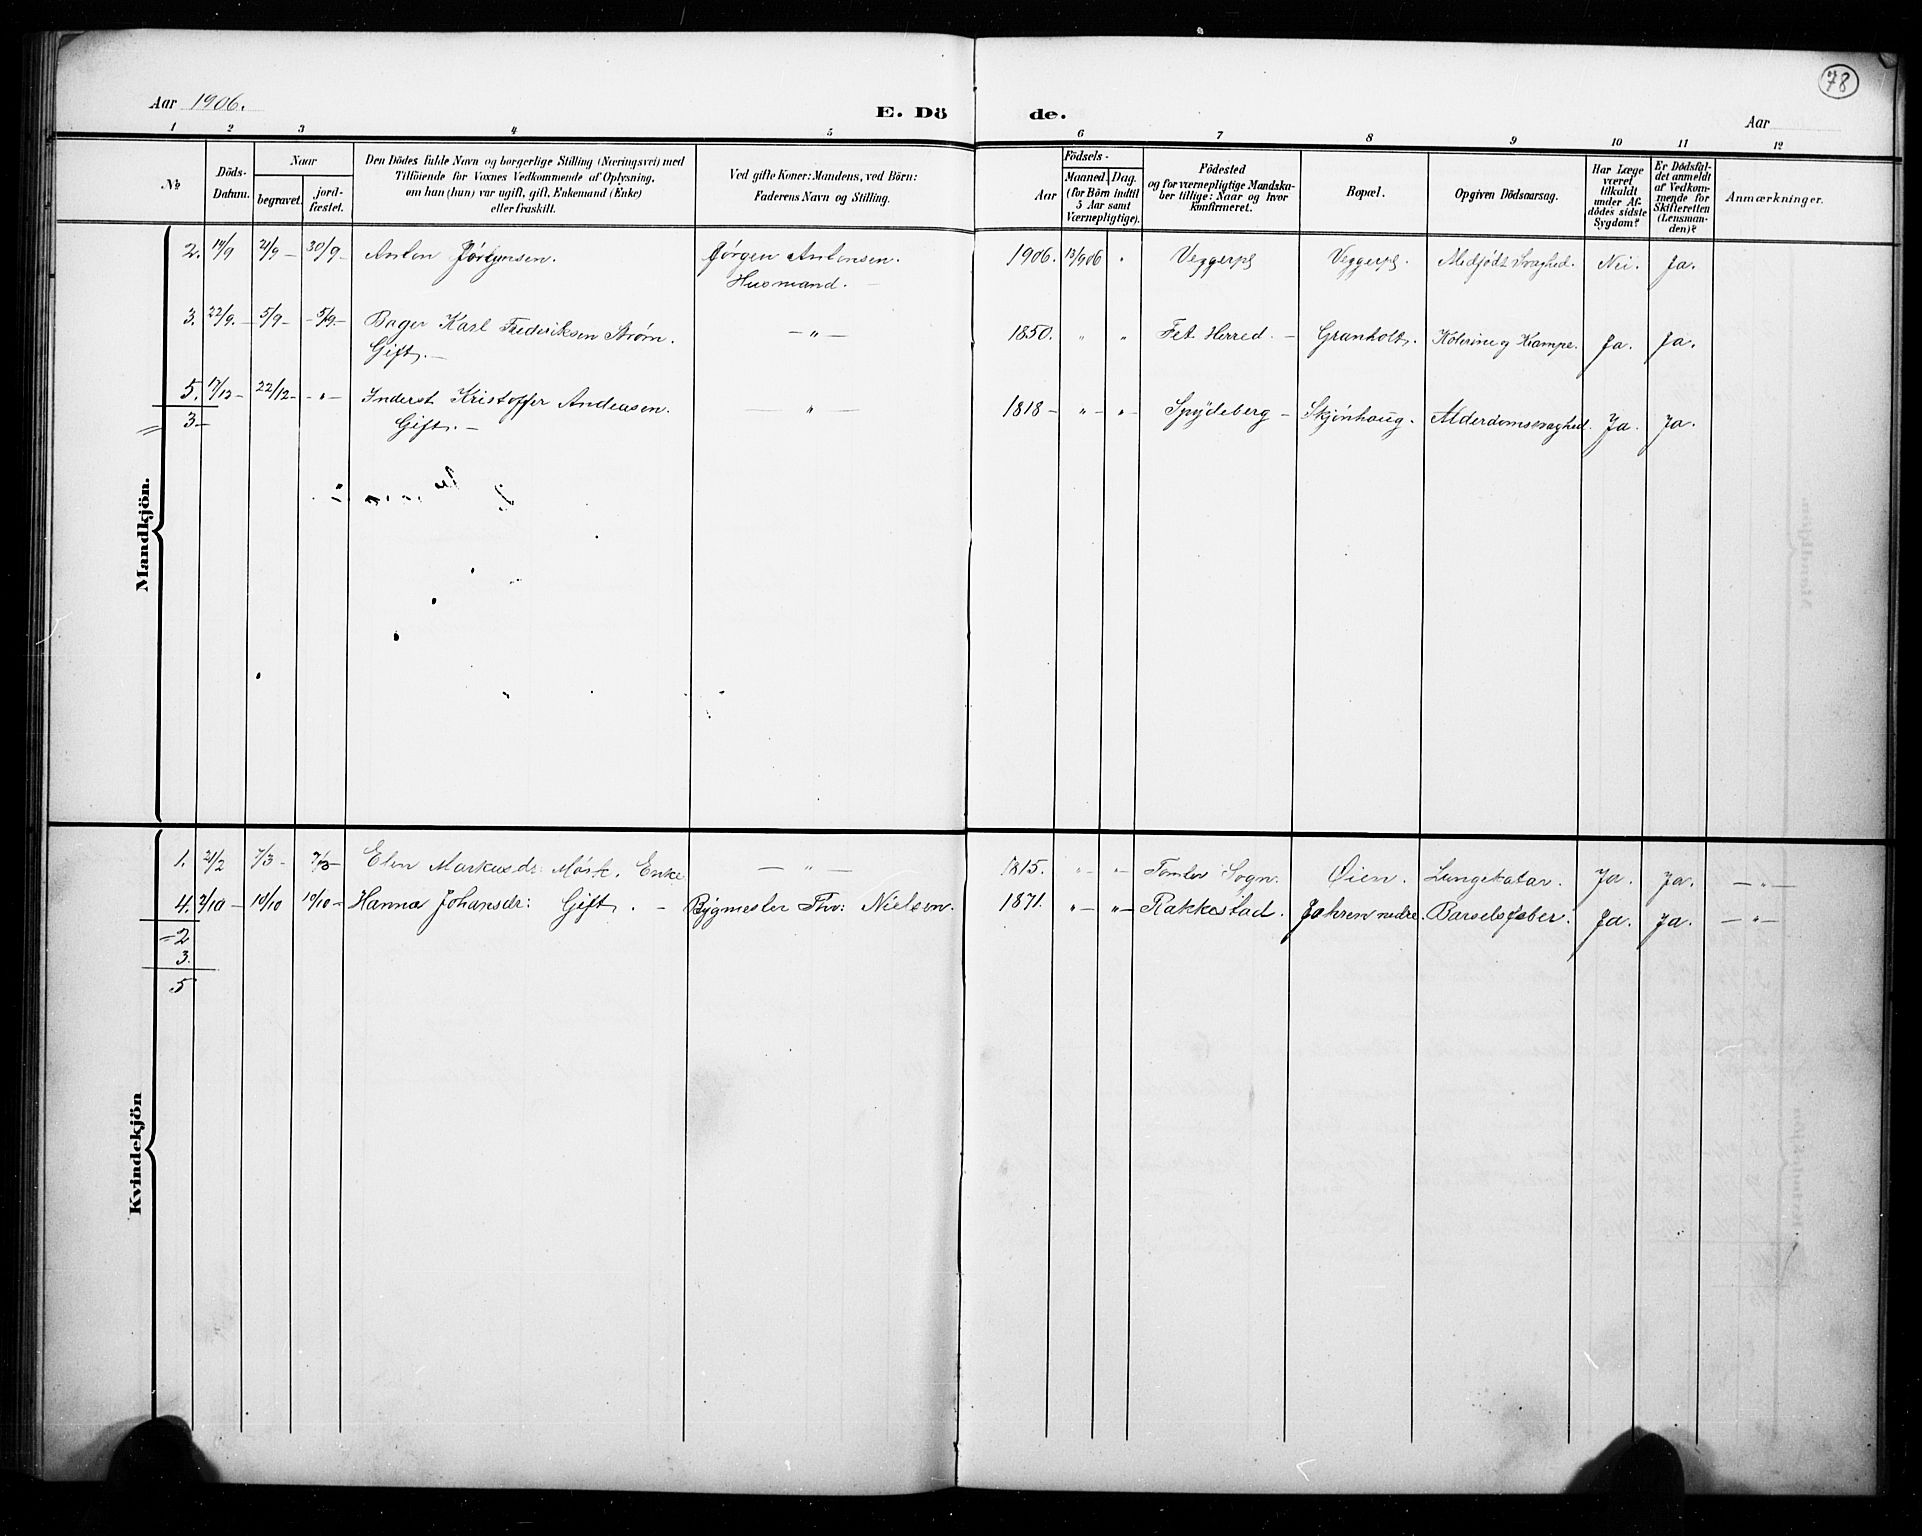 78
Aar 1906.
E. Dö de.
Aar
1 2 3 4 5 6 7 8 9 10 11 12
№
Döds-Datum.
Naar
begravet.
jord-fæstet.
Den Dödes fulde Navn og borgerlige Stilling (Næringsvei) med
Tilföiende for Voxnes Vedkommende af Oplysning,
om han (hun) var ugift, gift, Enkemand (Enke)
eller fraskilt.
Ved gifte Koner: Mandens, ved Börn:
Faderens Navn og Stilling.
Födsels-
Aar
Maaned. Dag.
(for Börn indtil
5 Aar samt
Værnepligtige).
Födested
og for værnepligtige Mandska-
ber tillige: Naar og hvor
konfirmeret.
Bopæl.
Opgiven Dödsaarsag.
Har Læge
været
tilkaldt
under Af-
dödes sidste
Sygdom?
Er Dödsfal-
det anmeldt
af Vedkom-
mende for
Skifteretten
(Lensman-
den)?
Anmærkninger.
Mandkjön.
2. 14/9 21/9 - 30/9 - Anton Jörgensen. Jørgen Antonsen. 1906. 13/9 06 " Veggerpl Veggerpl. Medfödt Svaghed. Nei. Ja.
Husmand. -
3. 22/9. - 5/9 - - 5/9 - Bager Karl Frederiksen Strøm. - " - 1850. " " Fet Herred. - Granholt. Ja. Ja.
Gift. -
5. 17/12 - 22/12 - - " - Inderst Kristoffer Andersen. - " - 1818 - " - " - Spydeberg - Skjønhaug. Alderdomssvaghed. Ja. Ja.
3 - Gift. -
Kvindekjön
1. 21/2 7/3 - 7/3 - Elen Markusdr: Mørk. Enke - " - 1815. " - " - Tomter Sogn. Øien. Lungekatar. Ja. Ja. - " -
4. 2/10 - 10/10 10/10 - Hanna Johansdr: Gift. - Bygmester Thv: Nielsen. 1871. " - " - Rakkestad. Jahren nedre. Barselsfeber. Ja. Ja. - " -
= 2
3.
5